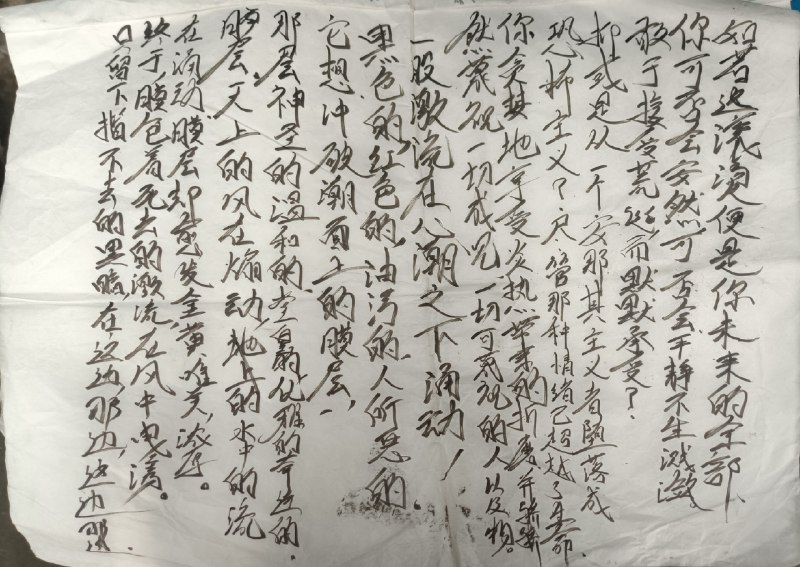 如若这滚烫便是你未来的全部、
你可否会安然可否会平静不生溅潋
敢于接受荒丝而默默承受？
抑或是从一个安那其主义者堕落成
恐怖主义？只管那种情绪已超越了生命、
你贪婪地享受炎热带来的折磨并骄矜
然蔑视一切成见一切可蔑视的人以及物。
一股激流在心潮之下涌动！
黑色的，红色的，油污的，人所恶的、
它想冲破潮面上的膜层，
那层神圣的温和的崇高的伦理的可近的、
膜层，天上的风在煽动，地上的水中的流
在涌动，膜层却愈发金黄、雄美、浓厚。
终于，膜包着死去的激流在风中曳荡。
只留下指不去的黑暗，在这边那边，这边那边